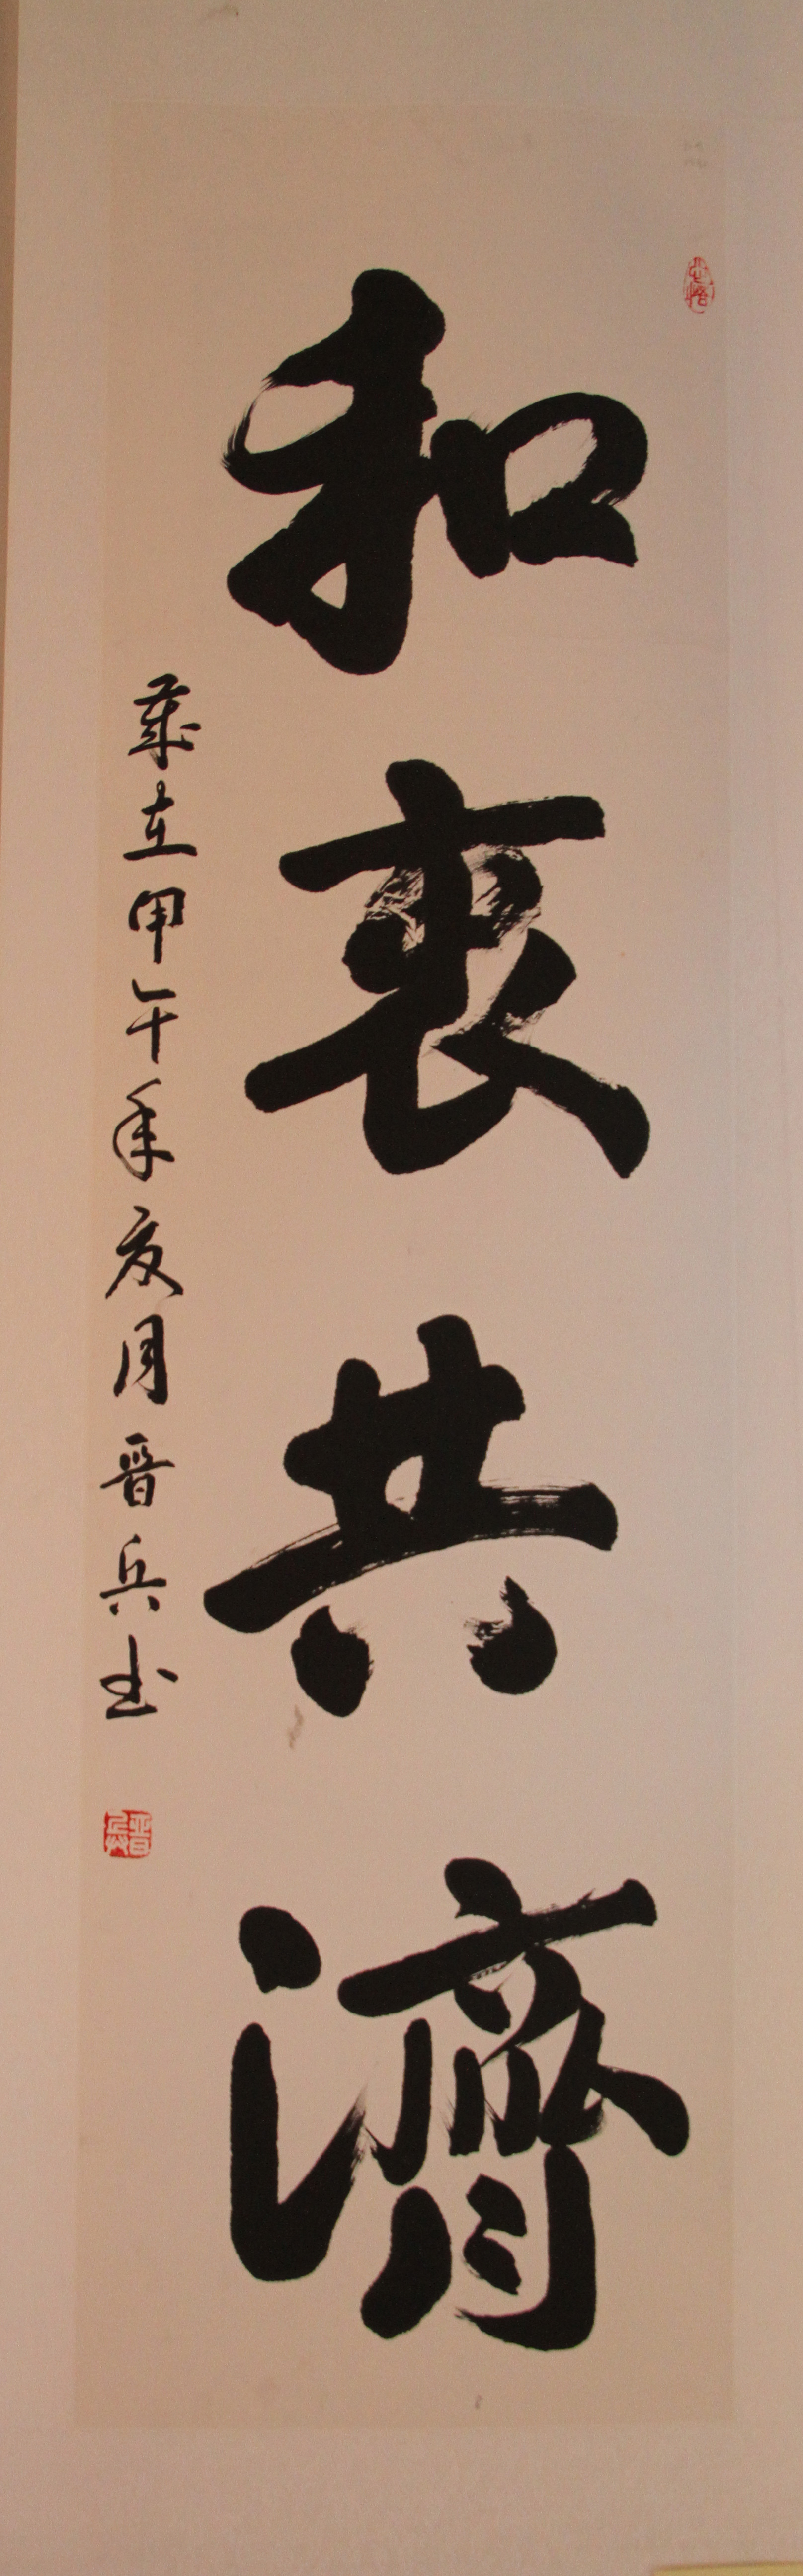 和衷共濟
歲在甲午年夏月晉兵书
晉兵